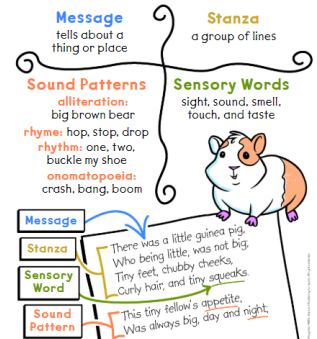 Message
tells about a
thing or place
Stanza
a group of lines
Sound Patterns
alliteration:
big brown bear
rhyme: hop, stop, drop
rhythm: one, two,
buckle my shoe
onomatopoeia:
crash, bang, boom
Sensory Words
sight, sound, smell,
touch, and taste
Message
Stanza
Sensory
Word
Sound
Pattern
There was a little guinea pig,
Who being little, was not big;
Tiny feet, chubby cheeks,
Curly hair, and tiny squeaks.
This tiny fellow's appetite,
Was always big, day and night,